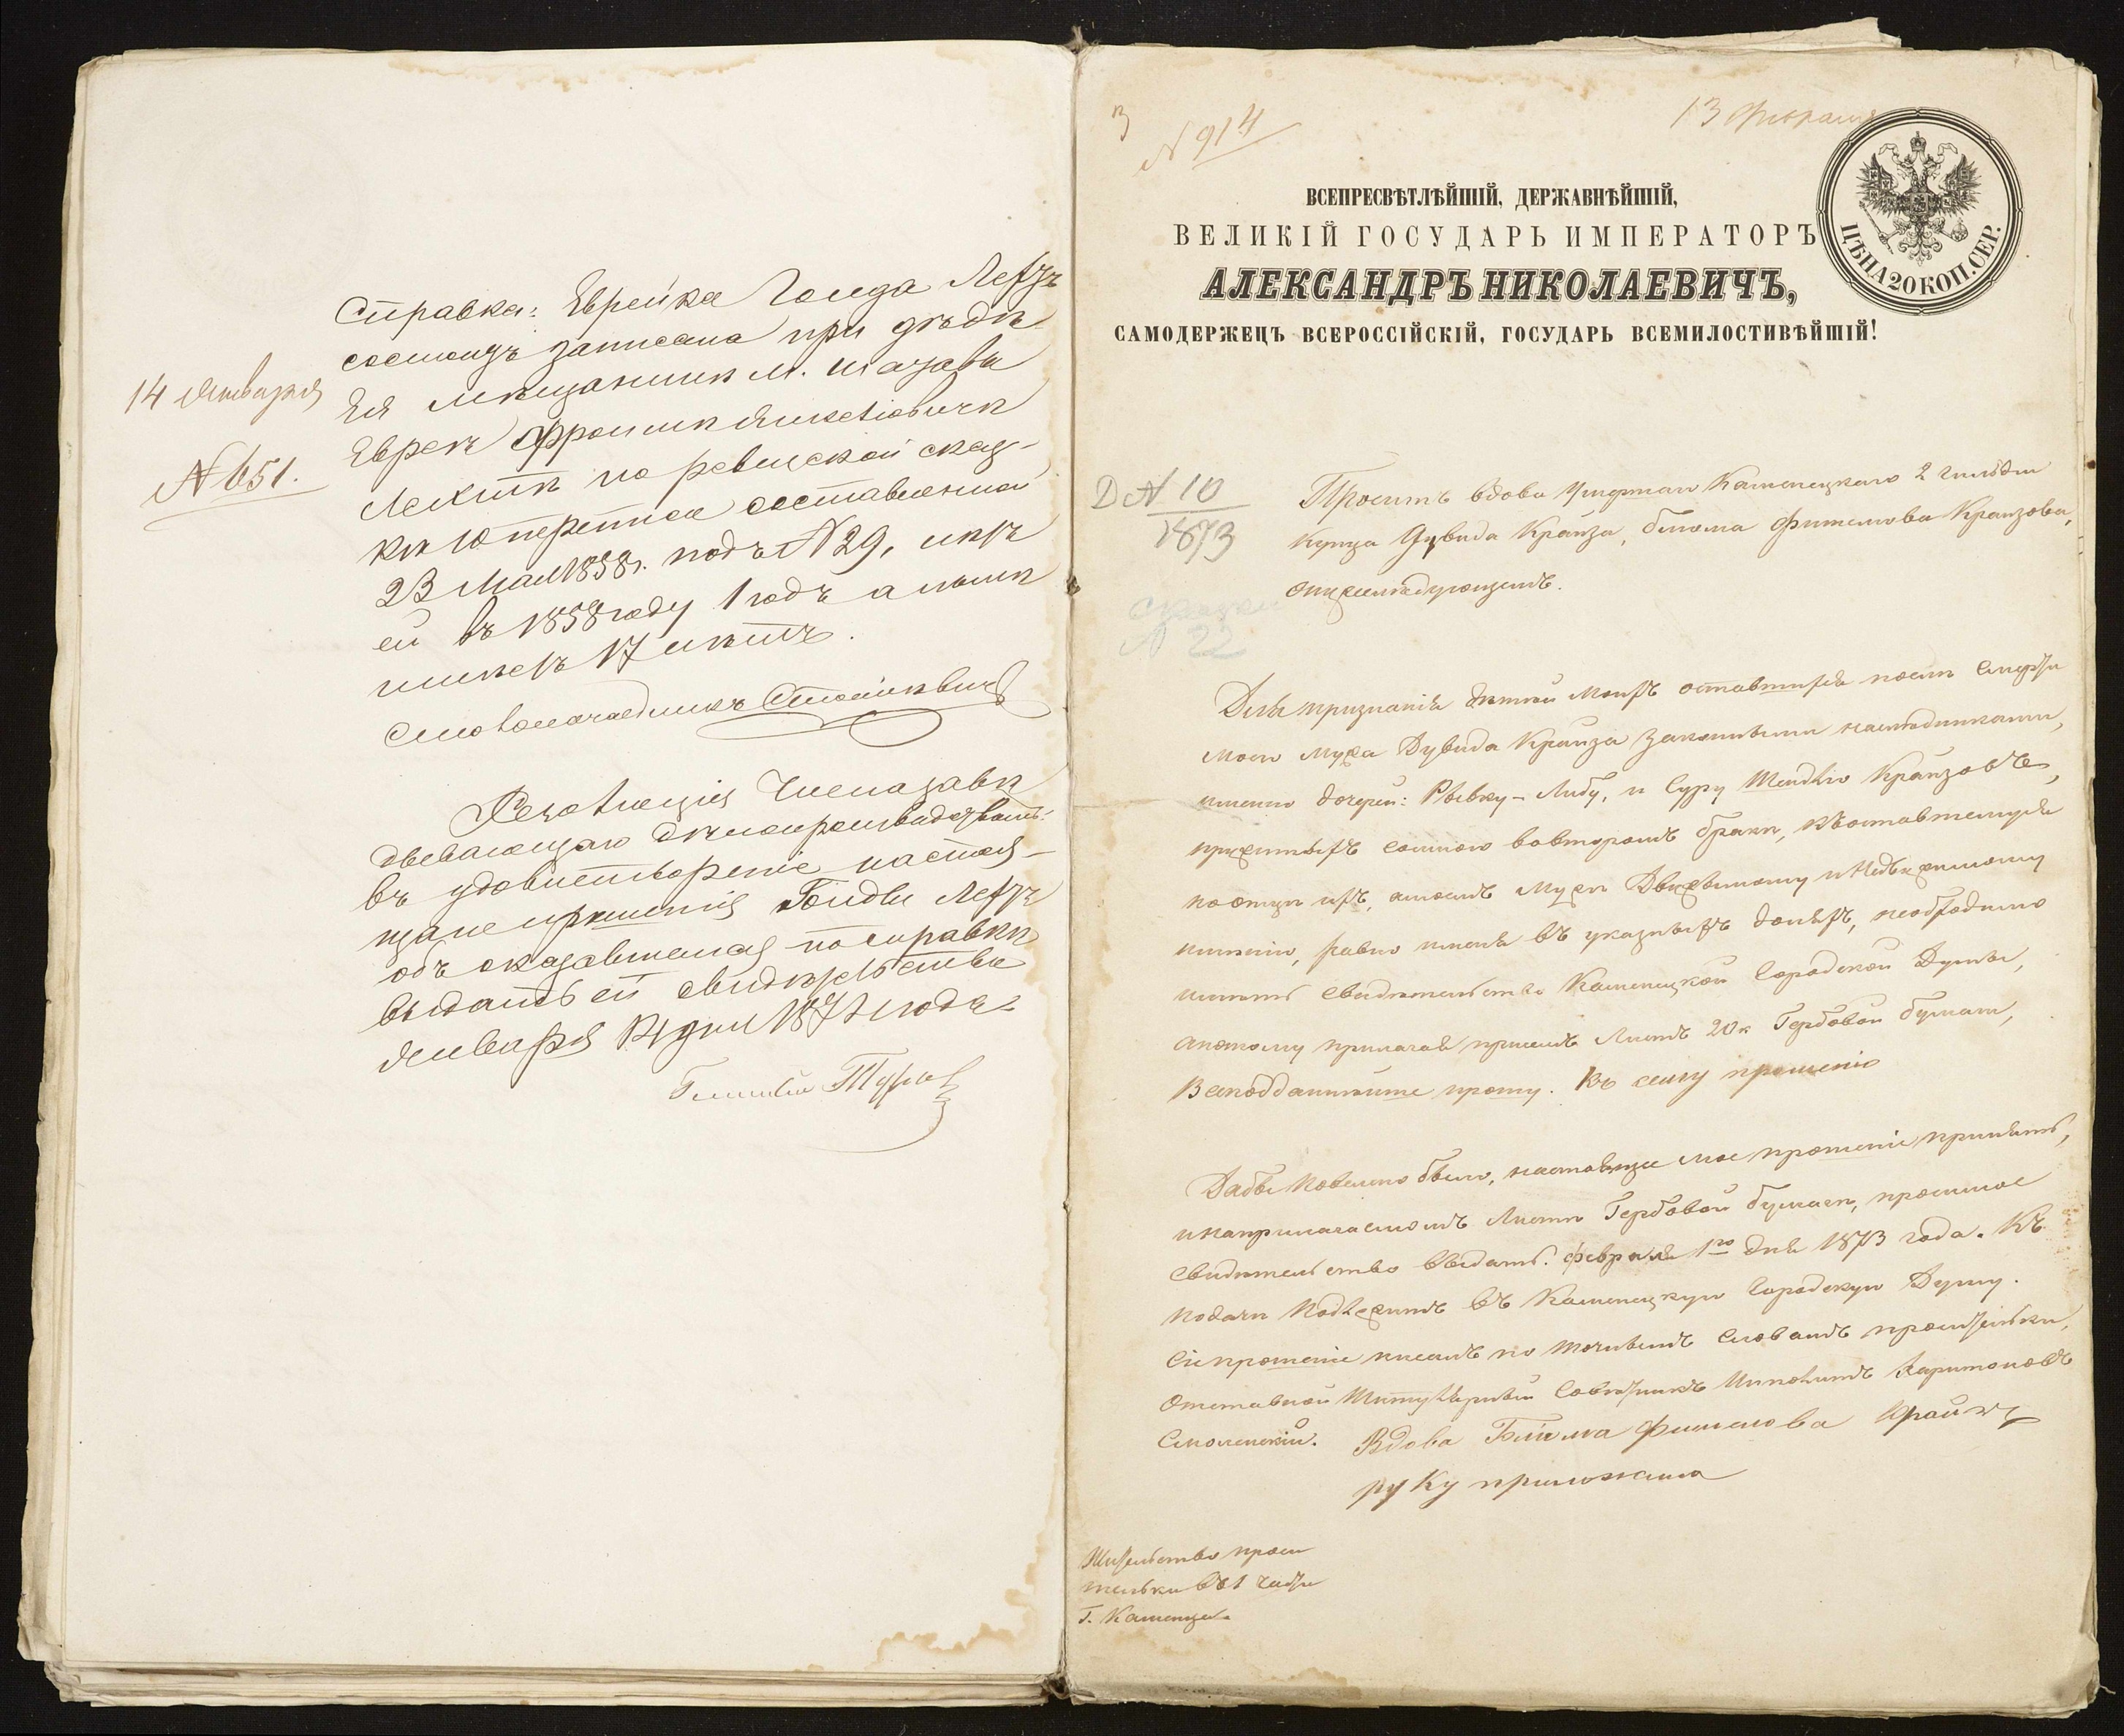 14 Января
№ 651.
Справка: Еврейка Гольда Лехтъ
состоитъ записана при дѣдѣ
Ея мѣщанинѣ м.
Евреѣ Фроимѣ
Лехитѣ по ревизской сказ-
кѣ Юперепися составленной
23 Мая 1858 г. подъ № 29, лѣтъ
ей въ 1858 году 1 годъ а нынѣ
17 лѣтъ.
Резолюція Члена завѣ
дывающаго дѣлопроизводствомъ:
въ удовлетвореніе настоя-
щаго прошенія Гольды Лехтъ
объ оказавшемся по справкѣ
выдать ей свидѣтельство
Января 14 дня 187 года
3
№ 914
13 Февраля
ВСЕПРЕСВѢТЛѢЙШІЙ, ДЕРЖАВНѢЙШІЙ,
ВЕЛИКІЙ ГОСУДАРЬ ИМПЕРАТОРЪ
АЛЕКСАНДРЪ НИКОЛАЕВИЧЪ,
САМОДЕРЖЕЦЪ ВСЕРОССІЙСКІЙ, ГОСУДАРЬ ВСЕМИЛОСТИВѢЙШІЙ!
ЦѢНА 20 КОП. СЕР.
Д № 10
1873
Сказки
№ 22
Проситъ вдова умершаго Каменецкаго 2 гильдіи
купца Дувида Крайза, Блюма Фишелова Крайзова,
онижеслѣдующемъ.
Для признанія дѣтей моихъ оставшихся послѣ смерти
моего мужа Дувида Крайза законными наслѣдниками,
именно дочерей: Рывку-Либу, и Суру Шейдлю Крайзовъ,
прижитыхъ самною вовторомъ бракѣ, къоставшемуся
поотцѣ ихъ, амоемъ мужѣ Движимому и Недвижимому
имѣнію, равно имѣя въ указныхъ доляхъ, необходимо
имѣть свидѣтельство Каменецкой Городской Думы,
апотому прилагая присемъ Листъ 20 к Гербовой бумаги,
Всеподданнѣйше прошу. Къ сему прошенію
Дабы повелено было, настоящее мое прошеніе принять,
инаприлагаемомъ Листѣ Гербовой бумаги, просимое
свидѣтельство выдать. Февраля 1го дня 1873 года. Къ
подачи подлежитъ въ Каменецкую Городскую Думу.
Сіе прошеніе писалъ по точнымъ словамъ просительки,
Отставной Титулярный Совѣтникъ Ипполитъ Харитоновъ
Смоленскій. Вдова Блюма Фишелова Крайзъ
руку приложила
Жительство проси
тельки въ 1 части
Г. Каменца.